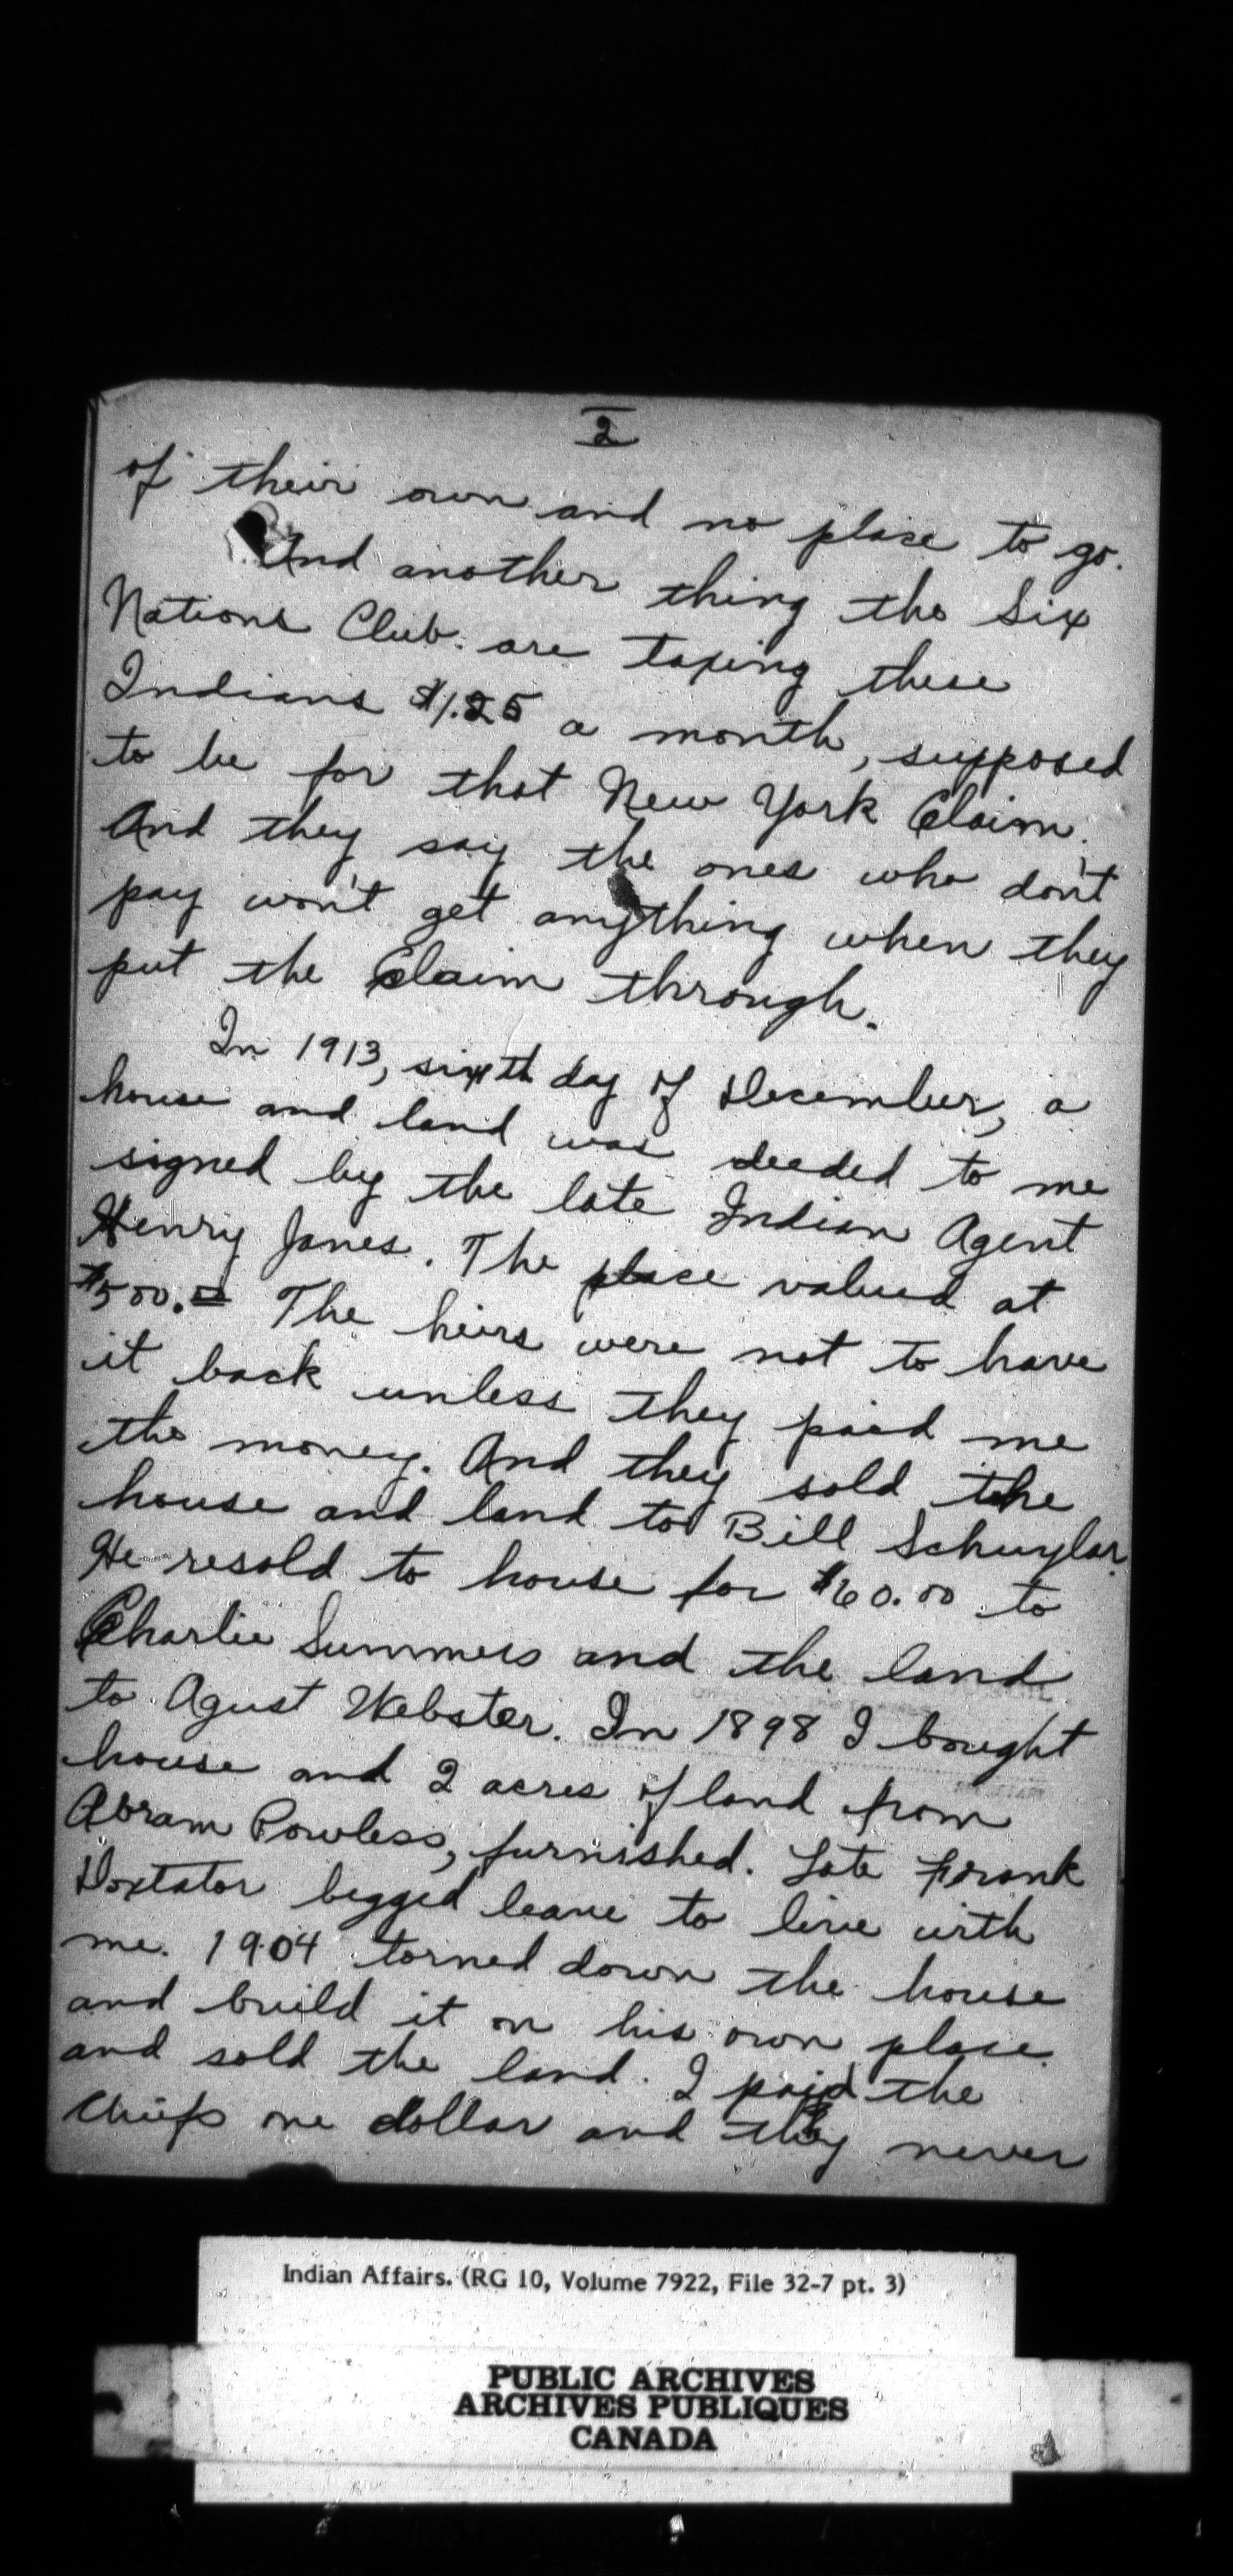 2
of their own and no place to go.
And another thing the Six
Nations Club. are taxing these
Indians $1.25 a month, supposed
to be for that New York Claim.
And they say the ones who don't
pay won't get anything when they
put the Claim through.
In 1913, sixth day of December, a
house and land was deeded to me
signed by the late Indian Agent
Henry Janes. The place valued at
$500.00 The heirs were not to have
it back unless they paid me
the money. And they sold the
house and land to Bill Schuylar.
He resold to house for $60.00 to
Charlie Summers and the land
to Agust Webster. In 1898 I bought
house and 2 acres of land from
Abram Powless, furnished. Late Frank
Doxtator begged leave to live with
me. 1904 torned down the house
and build it on his own place.
and sold the land. I paid the
Chiefs one dollar and they never
Indian Affairs. (RG 10, Volume 7922, File 32-7 pt. 3)
PUBLIC ARCHIVES
ARCHIVES PUBLIQUES
CANADA